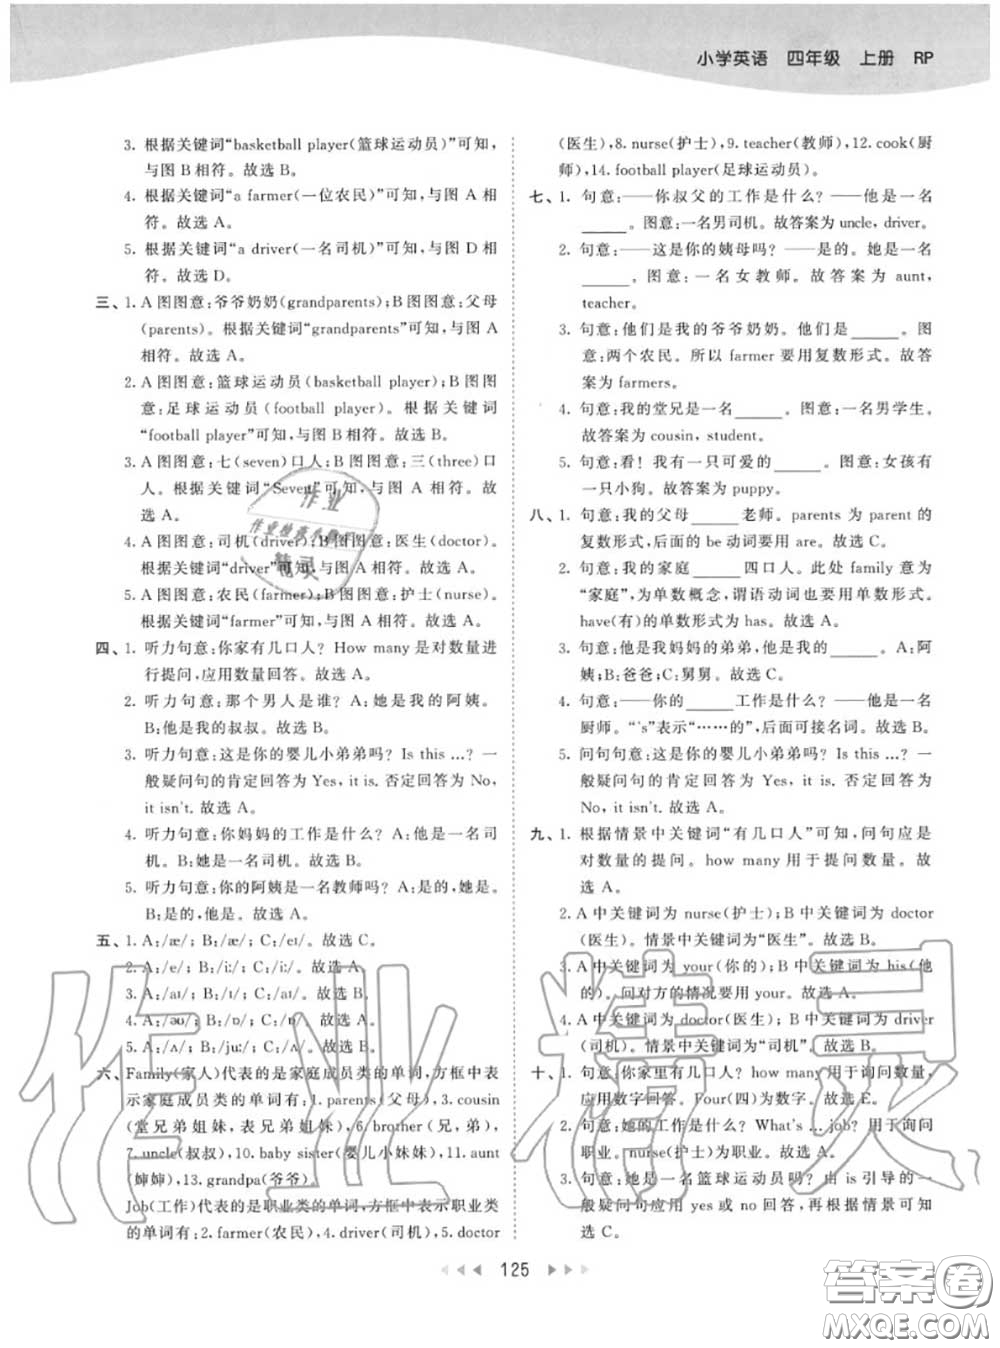 小学英语 四年级 上册 RP
3. 根据关键词“basketball player(篮球运动员)”可知,
与图 B 相符。故选 B。
4. 根据关键词“a farmer(一位农民)”可知,与图 A 相
符。故选 A。
5. 根据关键词“a driver(一名司机)”可知,与图 D 相
符。故选 D。
三、1. A 图图意:爷爷奶奶(grandparents);B 图图意:父母
(parents)。根据关键词“grandparents”可知,与图 A
相符。故选 A。
2. A 图图意:篮球运动员(basketball player);B 图图
意:足球运动员(football player)。根据关键词
“football player”可知,与图 B 相符。故选 B。
3. A 图图意:七(seven)口人;B 图图意:三(three)口
人。根据关键词“Seven”可知,与图 A 相符。故
选 A。
4. A 图图意:司机(driver);B 图图意:医生(doctor)。
根据关键词“driver”可知,与图 A 相符。故选 A。
5. A 图图意:农民(farmer);B 图图意:护士(nurse)。
根据关键词“farmer”可知,与图 A 相符。故选 A。
四、1. 听力句意:你家有几口人? How many 是对数量进
行提问,应用数量回答。故选 A。
2. 听力句意:那个男人是谁? A:她是我的阿姨。
B:他是我的叔叔。故选 B。
3. 听力句意:这是你的婴儿小弟弟吗? Is this …? 一
般疑问句的肯定回答为 Yes, it is. 否定回答为 No,
it isn't. 故选 A。
4. 听力句意:你妈妈的工作是什么? A:他是一名司
机。B:她是一名司机。故选 B。
5. 听力句意:你的阿姨是一名教师吗? A:是的,她是。
B:是的,他是。故选 A。
五、1. A:/æ/; B:/æ/; C:/eɪ/。故选 C。
2. A:/e/; B:/i:/; C:/i:/。故选 A。
3. A:/aɪ/; B:/ɪ/; C:/aɪ/。故选 B。
4. A:/əʊ/; B:/ɒ/; C:/ɒ/。故选 A。
5. A:/ʌ/; B:/ju:/; C:/ʌ/。故选 B。
六、Family(家人)代表的是家庭成员类的单词,方框中表
示家庭成员类的单词有:1. parents(父母),3. cousin
(堂兄弟姐妹,表兄弟姐妹),6. brother(兄,弟),
7. uncle(叔叔),10. baby sister(婴儿小妹妹),11. aunt
(婶婶),13. grandpa(爷爷)
Job(工作)代表的是职业类的单词,方框中表示职业类
的单词有:2. farmer(农民),4. driver(司机),5. doctor
(医生),8. nurse(护士),9. teacher(教师),12. cook(厨
师),14. football player(足球运动员)。
七、1. 句意:——你叔父的工作是什么? ——他是一名
______。图意:一名男司机。故答案为 uncle, driver。
2. 句意:——这是你的姨母吗? ——是的。她是一名
______。图意:一名女教师。故答案为 aunt,
teacher。
3. 句意:他们是我的爷爷奶奶。他们是______。图
意:两个农民。所以 farmer 要用复数形式。故答
案为 farmers。
4. 句意:我的堂兄是一名______。图意:一名男学生。
故答案为 cousin, student。
5. 句意:看! 我有一只可爱的______。图意:女孩有
一只小狗。故答案为 puppy。
八、1. 句意:我的父母______老师。parents 为 parent 的
复数形式,后面的 be 动词要用 are。故选 C。
2. 句意:我的家庭______四口人。此处 family 意为
“家庭”,为单数概念,谓语动词也要用单数形式。
have(有)的单数形式为 has。故选 A。
3. 句意:他是我妈妈的弟弟,他是我的______。A:阿
姨;B:爸爸;C:舅舅。故选 C。
4. 句意:——你的______工作是什么? ——他是一名
厨师。“'s”表示“……的”,后面可接名词。故选 B。
5. 问句句意:这是你的婴儿小弟弟吗? Is this …? 一
般疑问句的肯定回答为 Yes, it is. 否定回答为
No, it isn't. 故选 A。
九、1. 根据情景中关键词“有几口人”可知,问句应是
对数量的提问。how many 用于提问数量。故
选 A。
2. A 中关键词为 nurse(护士);B 中关键词为 doctor
(医生)。情景中关键词为“医生”。故选 B。
3. A 中关键词为 your(你的);B 中关键词为 his(他
的)。问对方的情况要用 your。故选 A。
4. A 中关键词为 doctor(医生);B 中关键词为 driver
(司机)。情景中关键词为“司机”。故选 B。
十、1. 句意:你家里有几口人? how many 用于询问数量,
应用数字回答。Four(四)为数字。故选 E。
2. 句意:她的工作是什么? What's … job? 用于询问
职业。nurse(护士)为职业。故选 A。
3. 句意:她是一名篮球运动员吗? 由 is 引导的一
般疑问句应用 yes 或 no 回答,再根据情景可知
选 C。
125
作业
作业检查小助手
精灵
作业精灵
答案卷
MXQE.COM